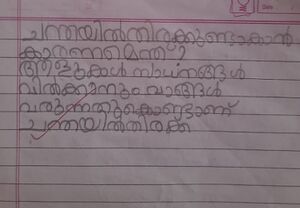 ചന്തയിൽതിരക്കുണ്ടാകാൻ
കാരണമെന്ത്?
ആളുകൾ സാധനങ്ങൾ
വിൽക്കുന്നും വാങ്ങൾ
വരുന്നതുകൊണ്ടാണ്
ചന്തയിൽതിരക്ക്